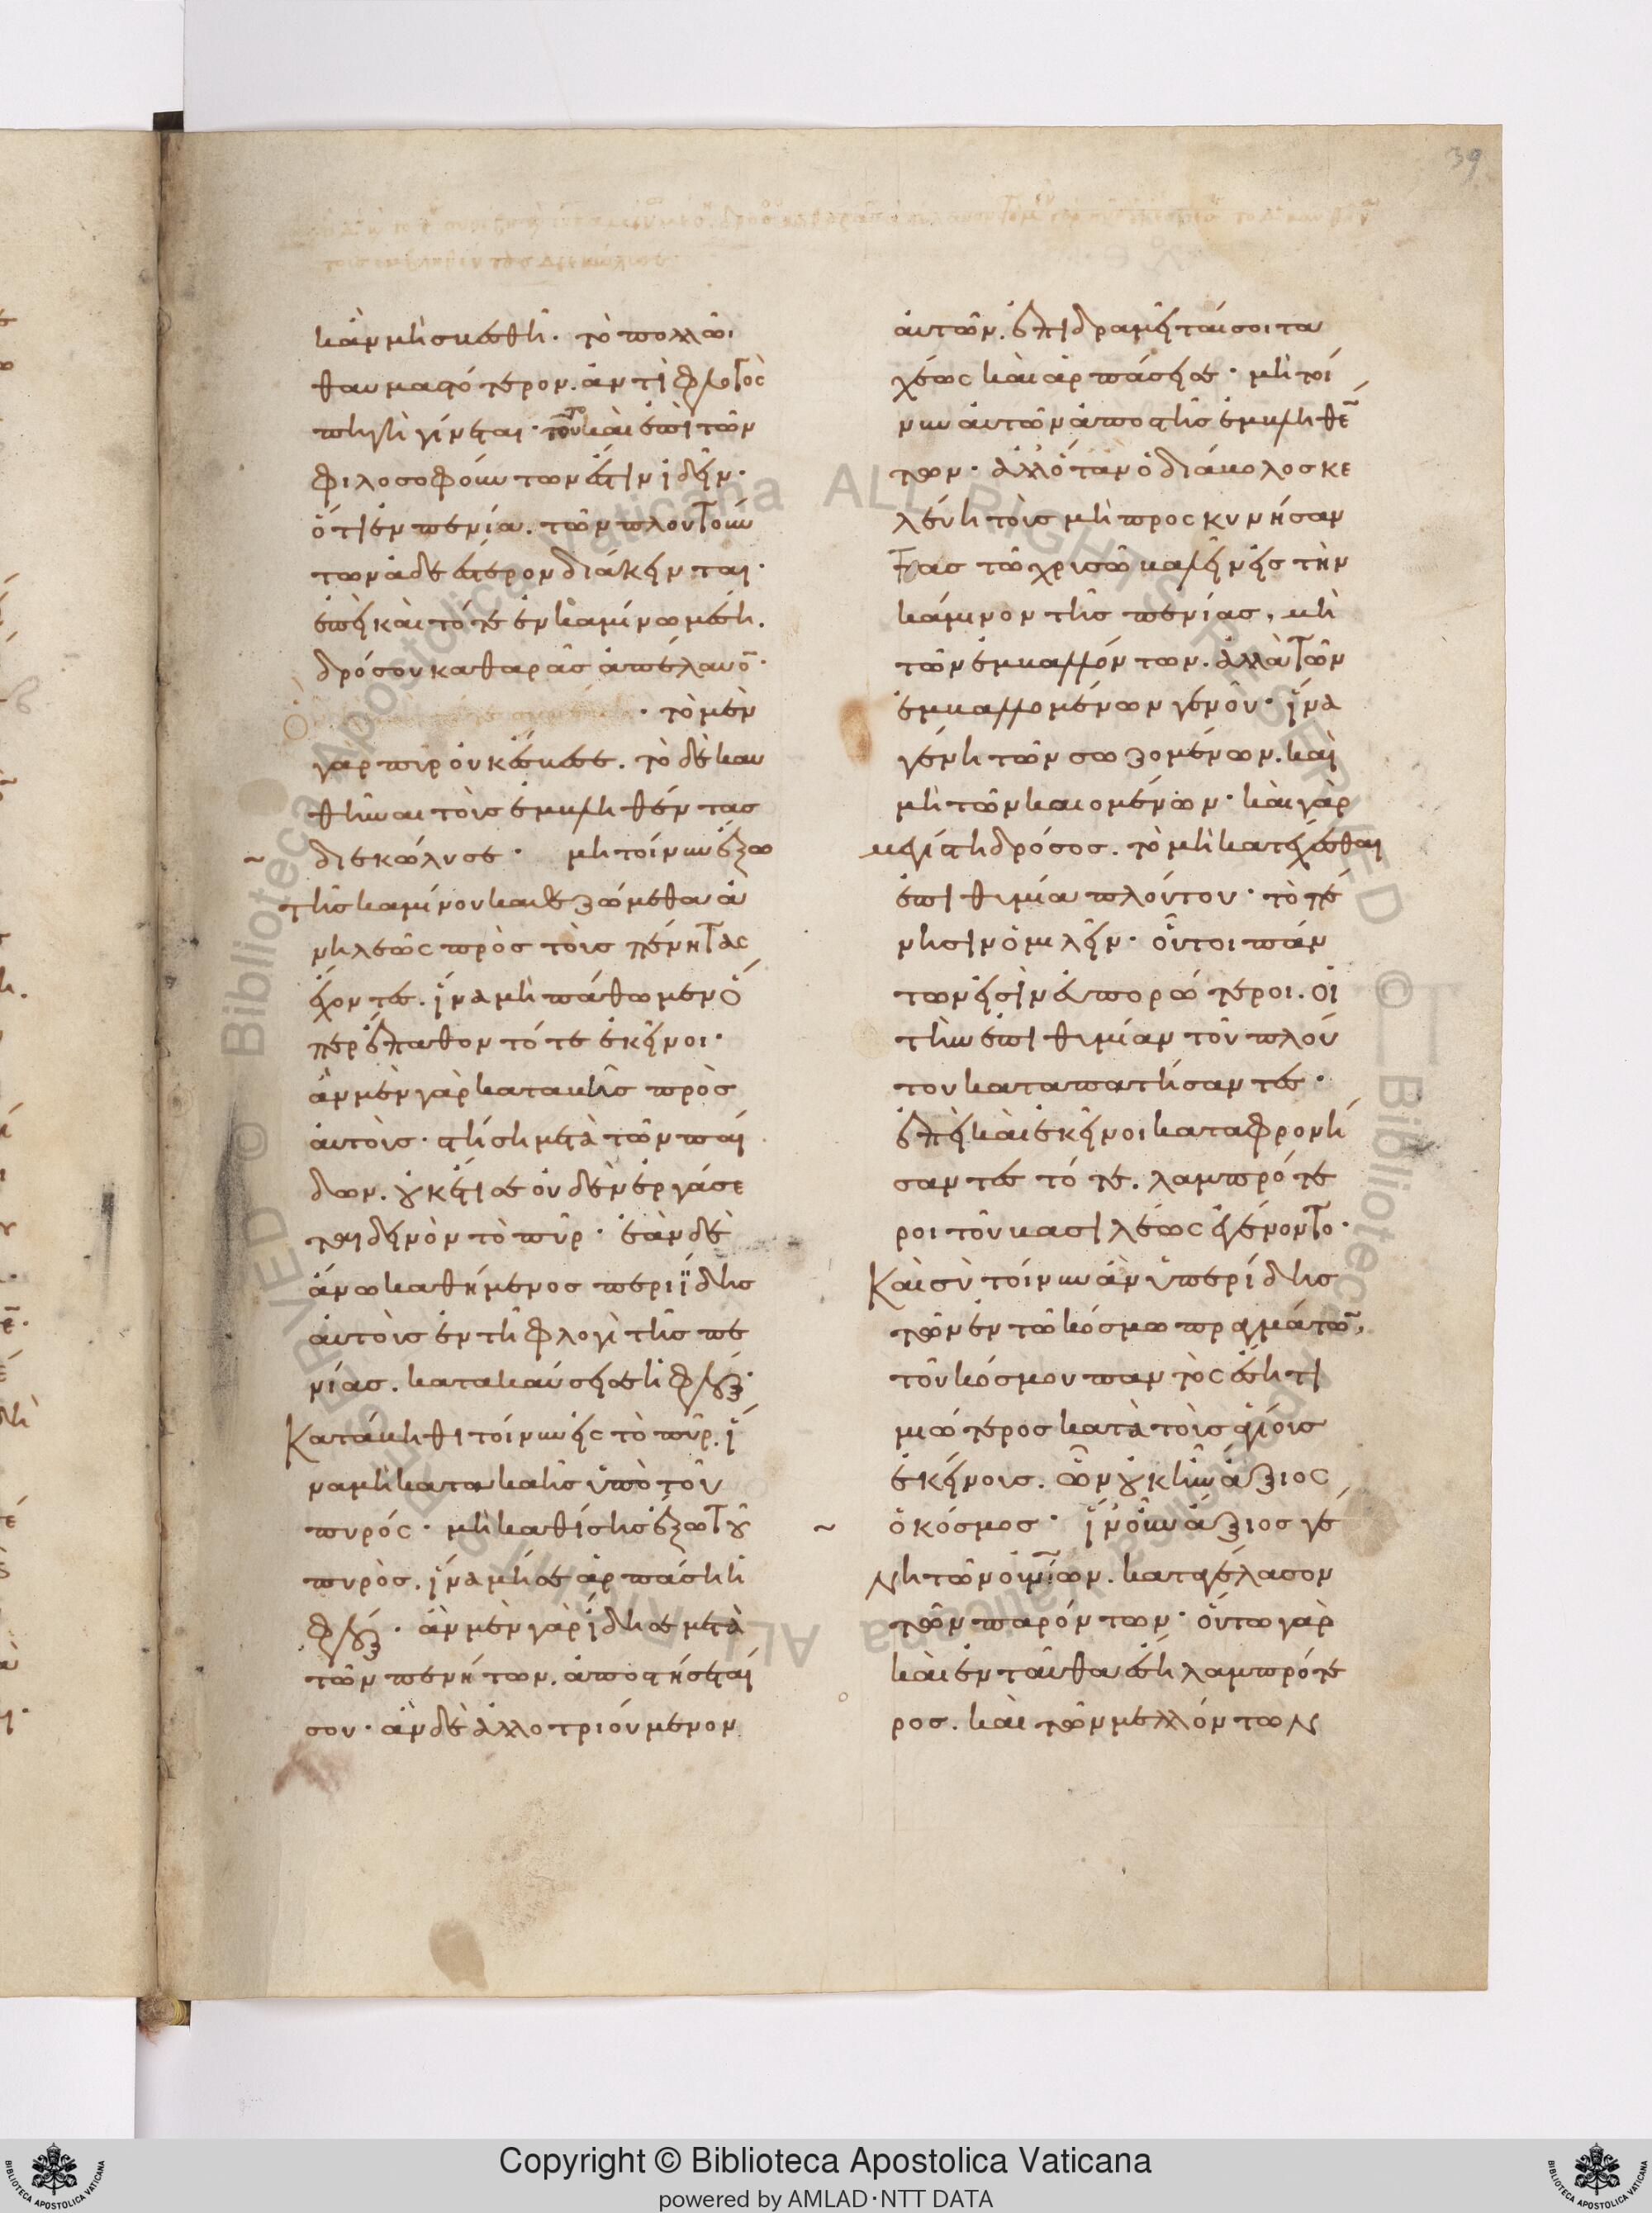 39
κἂν μὴ σβεσθῆ· τὸ πολλῶ
θαυμαστότερον. ἀντὶ φλογὸς
πηγὴ γίνεται· τοῦτο καὶ ἐπὶ τῶν
φιλοσοφούντων ἔστιν ἰδεῖν·
ὅτι ἐν πενία. τῶν πλουτούν
των ἀδεέστερον διάκεινται·
ἐπεὶ καὶ τότε ἐν καμίνω μέση.
δρόσου καθαρᾶς ἀπέλαυον·
· τὸ μὲν
γὰρ πῦρ οὐκ ἔσβεσε. τὸ δὲ καυ
θῆναι τοὺς ἐμβληθέντας
διεκώλυσε· μὴ τοίνυν ἔξω
τῆς καμίνου καθεζώμεθα ἀ
νηλεῶς πρὸς τοὺς πένητας
ἔχοντες. ἵνα μὴ πάθωμεν ὅ
περ ἔπαθον τότε ἐκεῖνοι·
ἂν μὲν γὰρ καταβῆς πρὸς
αὐτοὺς· στήση μετὰ τῶν παί
δων. οὐκέτι σε οὐδὲν ἐργάσε
ται δεινὸν τὸ πῦρ· ἐὰν δὲ
ἄνω καθήμενος περιΐδης
αὐτοὺς ἐν τῆ φλογὶ τῆς πε
νίας. κατακαύσει σε ἡ φλόξ·
Κατάβηθι τοίνυν εἰς τὸ πῦρ. ἵ
να μὴ κατακαῆς ὑπὸ τοῦ
πυρός· μὴ καθίσης ἔξω τοῦ
πυρὸς. ἵνα μή σε ἁρπάση ἡ
φλόξ· ἂν μὲν γὰρ ἴδη σε μετὰ
τῶν πενήτων. ἀποστήσεταί
σου· ἂν δὲ ἀλλοτριούμενον
αὐτῶν. ἐπιδραμεῖταί σοι τα
χέως καὶ ἁρπάσει σε· μὴ τοί
νυν αὐτῶν ἀποστῆς ἐμβληθέν
των· ἀλλ' ὅταν ὁ διάβολος κε
λεύη τοὺς μὴ προσκυνήσαν
τας τῶ χρυσῶ βαλεῖν εἰς τὴν
κάμινον τῆς πενίας, μὴ
τῶν ἐμβαλλόντων. ἀλλὰ τῶν
ἐμβαλλομένων γενοῦ· ἵνα
γένη τῶν σωζομένων. καὶ
μὴ τῶν καιομένων· καὶ γὰρ
μεγίστη δρόσος. τὸ μὴ κατέχεσθαι
ἐπιθυμία πλούτου· τὸ πέ
νησιν ὁμιλεῖν· οὗτοι πάν
των εἰσὶν εὐπορώτεροι. οἱ
τὴν ἐπιθυμίαν τοῦ πλού
του καταπατήσαντες·
ἐπεὶ καὶ ἐκεῖνοι καταφρονή
σαντες τότε. λαμπρότε
ροι τοῦ βασιλέως ἐγένοντο·
Καὶ σὺ τοίνυν ἂν ὑπερίδης
τῶν ἐν τῶ κόσμω πραγμάτων,
τοῦ κόσμου παντὸς ἔση τι
μιώτερος κατὰ τοὺς ἁγίους
ἐκείνους. ὧν οὐκ ἦν ἄξιος
ὁ κόσμος· ἵν' οὖν ἄξιος γέ
νη τῶν οὐρανίων. καταγέλασον
τῶν παρόντων· οὕτω γὰρ
καὶ ἐνταῦθα ἔση λαμπρότε
ρος. καὶ τῶν μελλόντων
Copyright © Biblioteca Apostolica Vaticana
powered by AMLAD·NTT DATA